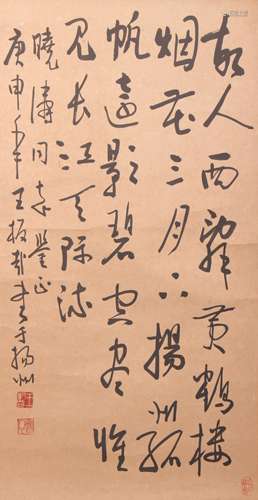 故人西辞黄鹤楼
烟花三月下扬州孤
帆远影碧空尽惟
见长江天际流
晓涛同志鉴正
庚申年 王板哉书于扬州